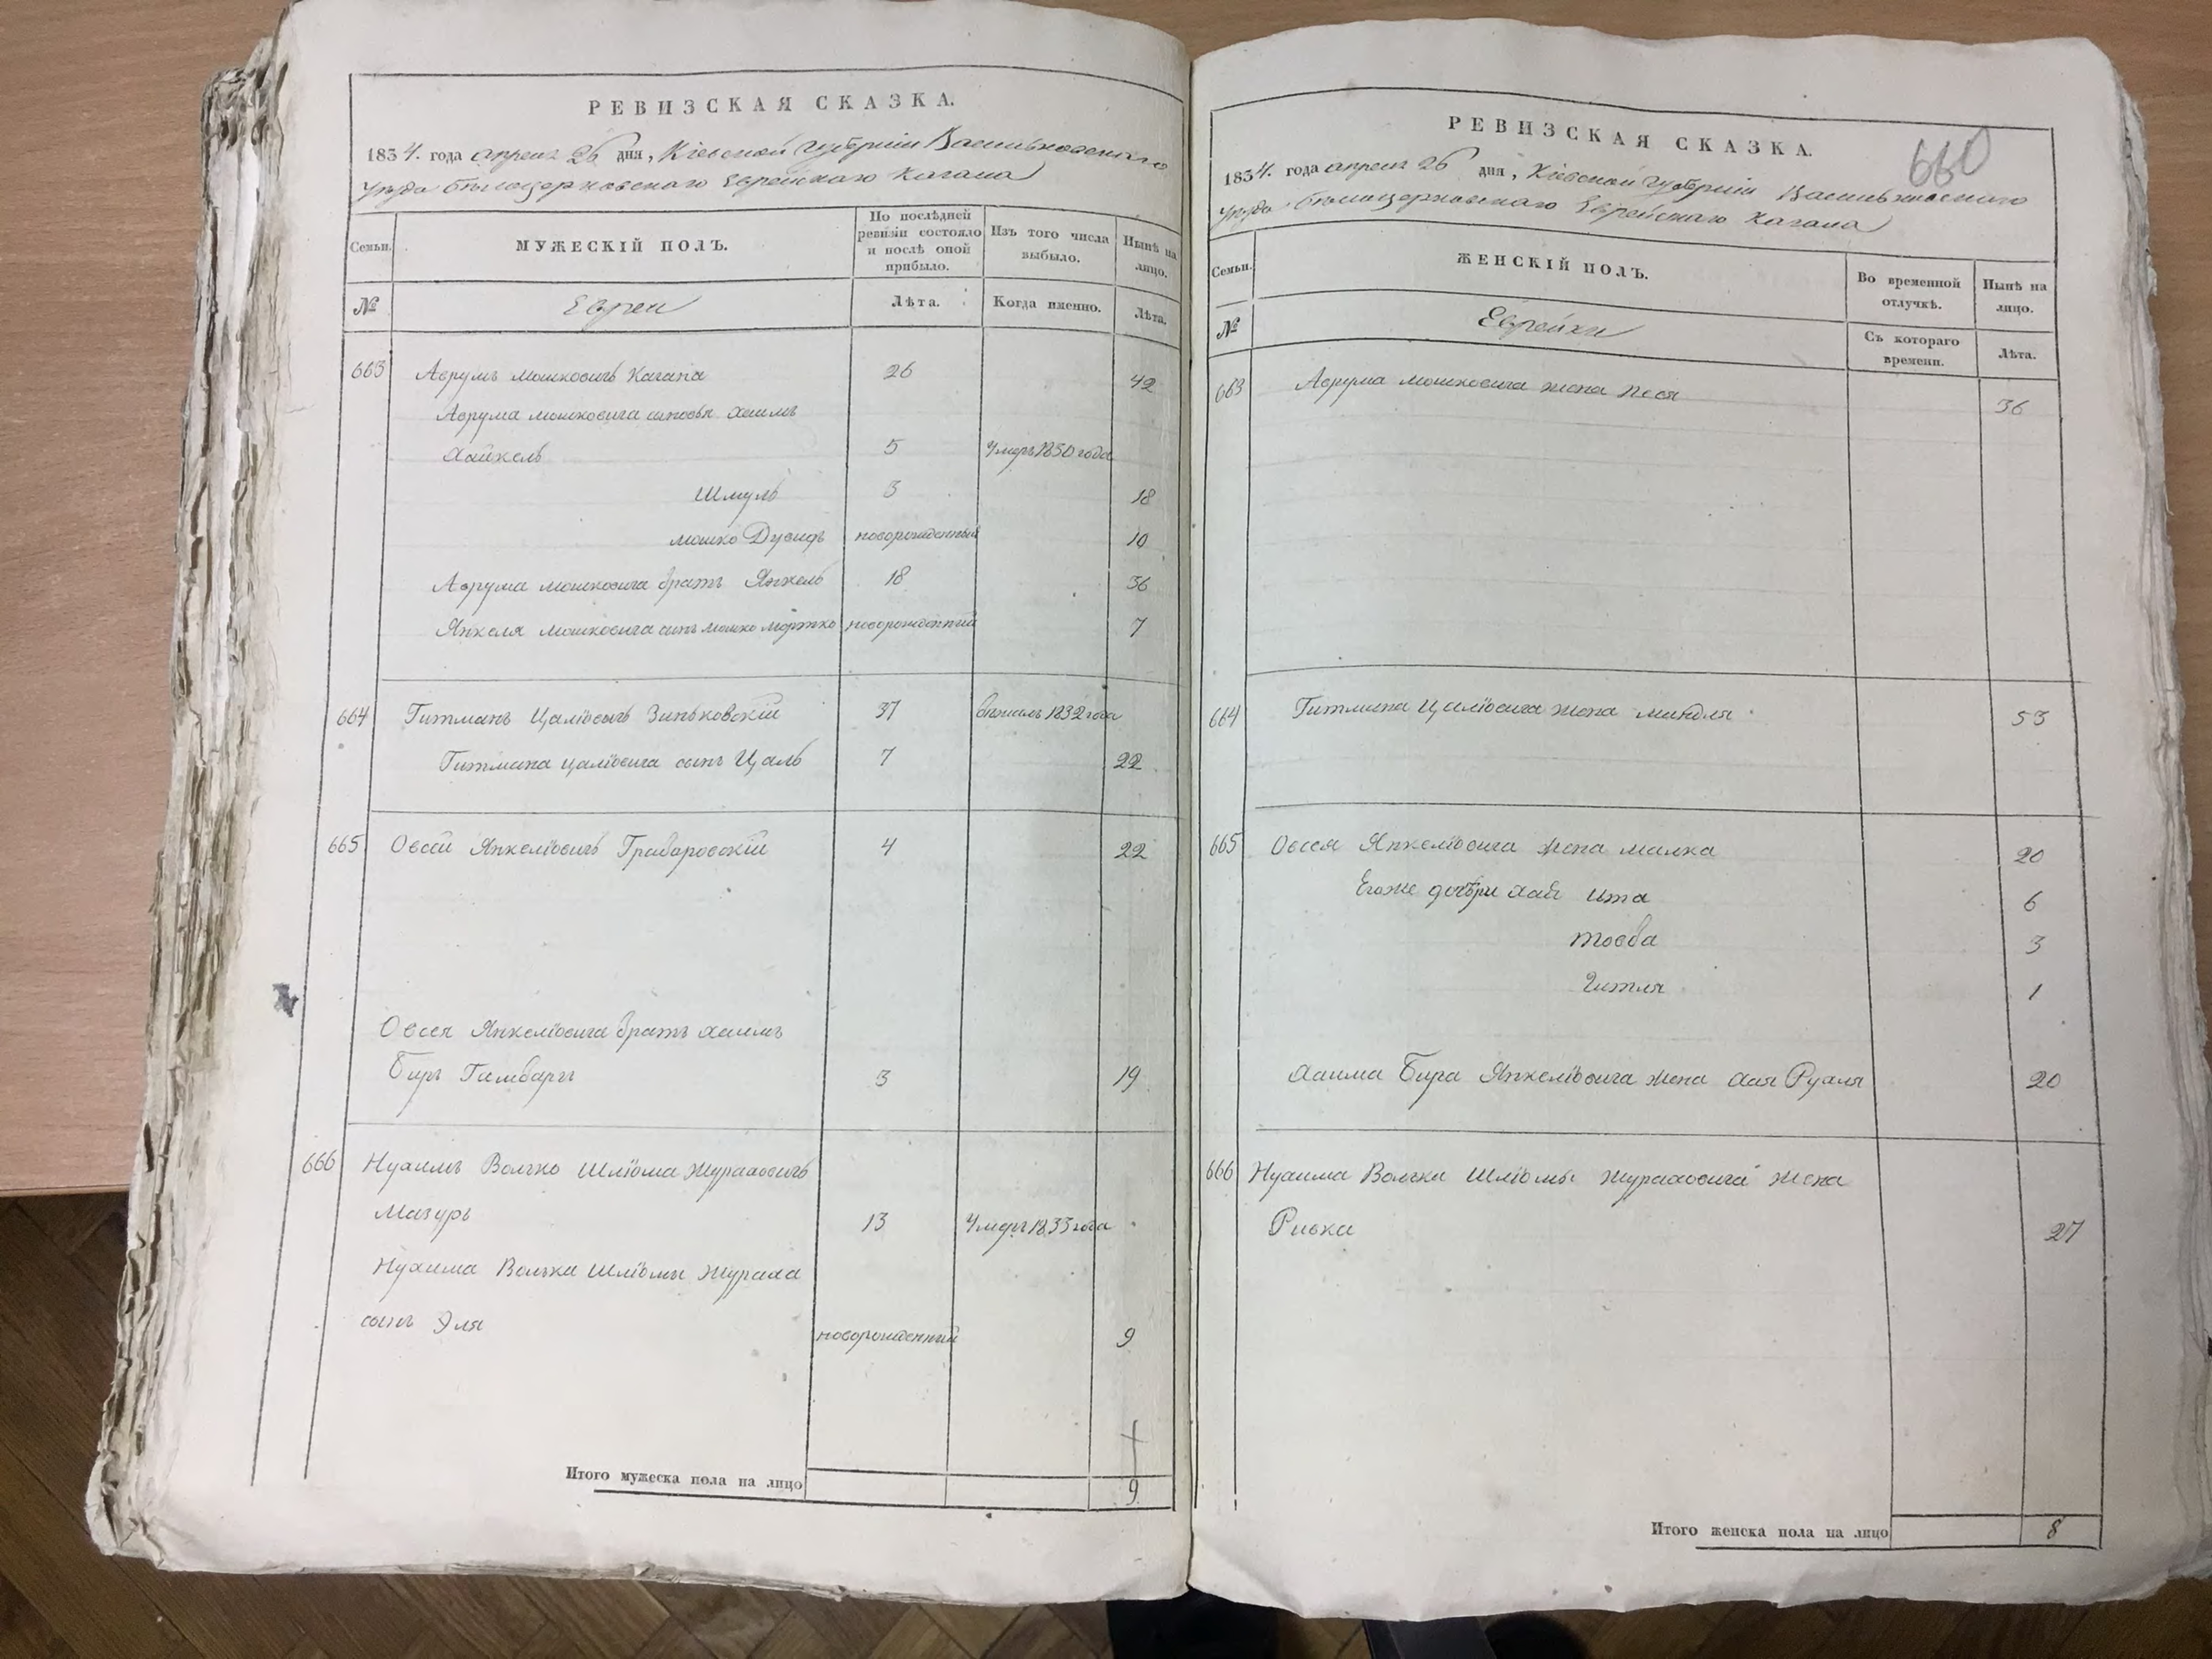 РЕВИЗСКАЯ СКАЗКА.
1834. года апреля 26 дня, Кіевской губерніи Васильковского
уезда Белоцерковскаго Еврейскаго Кагала
Семьи.
МУЖЕСКІЙ ПОЛЪ.
По послѣдней ревизіи состояло и послѣ оной прибыло.
Изъ того числа выбыло.
Нынѣ на лицо.
№
Евреи
Лѣта.
Когда именно.
Лѣта.
663 Аврумъ Мошковичъ Кагана 26 42
Аврума Мошковича сыновья Хаимъ
Хайкель 5 Умеръ 1830 года
Шмуль 3 18
Мошко Дувидъ новорожденный 10
Аврума Мошковича братъ Янкель 18 36
Янкеля Мошковича сынъ Мошко Мортко новорожденный 7
664 Гитманъ Цаліовичъ Зиньковскій 37 1832 года
Гитмана Цаліовича сынъ Цаль 7 22
665 Овсей Янкеліовичъ Грабаровскій 4 22
Овсея Янкеліовича братъ Хаимъ
Биръ Гимбаргъ 3 19
666 Нухимъ Волько Шліома Журахович
Мазуръ 13 Умеръ 1833 года
Нухима Волька Шліомы Жураха
сынъ Эля новорожденный 9
Итого мужеска пола на лицо 9
РЕВИЗСКАЯ СКАЗКА.
660
1834. года апреля 26 дня, Кіевской губерніи Васильковского
уезда Белоцерковскаго Еврейскаго Кагала
Семьи.
ЖЕНСКІЙ ПОЛЪ.
Во временной отлучкѣ.
Нынѣ на лицо.
№
Еврейки
Съ котораго времени.
Лѣта.
663 Аврума Мошковича жена Песя 36
664 Гитмана Цаліовича жена Миндля 53
665 Овсея Янкеліовича жена Малка 20
Егоже дочѣри Хая Ита 6
Товба 3
Гитля 1
Хаима Бира Янкеліовича жена Хая Рухля 20
666 Нухима Вольки Шліомы Жураховича жена
Ривка 27
Итого женска пола на лицо 8